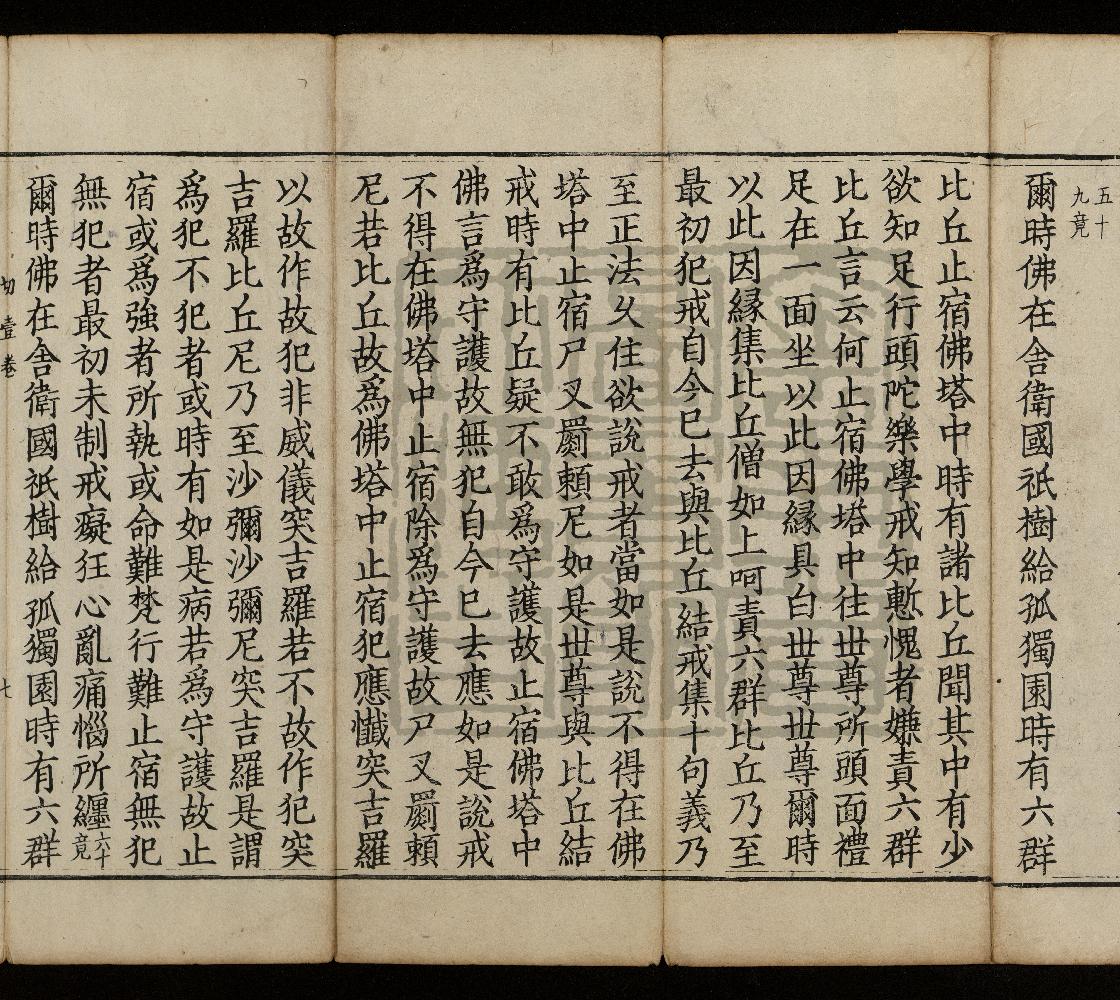 五十
九竟
爾時佛在舍衛國祇樹給孤獨園時有六群
比丘止宿佛塔中時有諸比丘聞其中有少
欲知足行頭陀樂學戒知慙愧者嫌責六群
比丘言云何止宿佛塔中往世尊所頭面禮
足在一面坐以此因緣具白世尊世尊爾時
以此因緣集比丘僧如上呵責六群比丘乃至
最初犯戒自今已去與比丘結戒集十句義乃
至正法久住欲說戒者當如是說不得在佛
塔中止宿尸叉罽賴尼如是世尊與比丘結
戒時有比丘疑不敢為守護故止宿佛塔中
佛言為守護故無犯自今已去應如是說戒
不得在佛塔中止宿除為守護故尸叉罽賴
尼若比丘故為佛塔中止宿犯應懺突吉羅
以故作故犯非威儀突吉羅若不故作犯突
吉羅比丘尼乃至沙彌沙彌尼突吉羅是謂
為犯不犯者或時有如是病若為守護故止
宿或為強者所執或命難梵行難止宿無犯
無犯者最初未制戒癡狂心亂痛惱所纏六十竟
爾時佛在舍衛國祇樹給孤獨園時有六群
切 壹卷 七